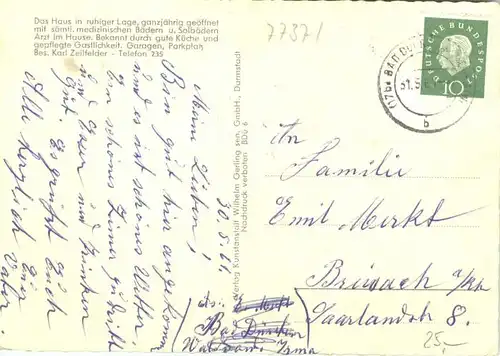 Das Haus in ruhiger Lage, ganzjährig geöffnet
mit sämtl. medizinischen Bädern u. Solbädern
Arzt im Hause. Bekannt durch gute Küche und
gepflegte Gastlichkeit. Garagen, Parkplatz
Bes. Karl Zeilfelder - Telefon 235
77371
DEUTSCHE BUNDESPOST
10
(17b) BAD DÜ
b
30.8.61.
Meine Lieben!
Bin gut hier angekommen
und es ist schönes Wetter,
ein schönes Zimmer
und Essen und Trinken
Gut
Es grüßt Euch
Alle herzlich Euer
Vater.
Verlag Kunstanstalt Wilhelm Gerling sen. GmbH., Darmstadt
Nachdruck verboten BDü 6
An
Familie
Emil Merkt
Breisach a/Rh
Saarlandstr 8.
abs: E. Merkt
Bad Dürrheim
25,-